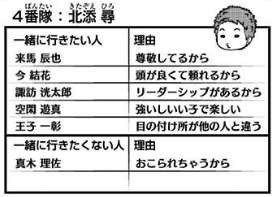 4番隊：北添 尋
ばんたい きたぞえ ひろ
一緒に行きたい人 理由
来馬 辰也 尊敬してるから
今 結花 頭が良くて頼れるから
諏訪 洸太郎 リーダーシップがあるから
空閑 遊真 強いしいい子で楽しい
王子 一彰 目の付け所が他の人と違う
一緒に行きたくない人 理由
真木 理佐 おこられちゃうから